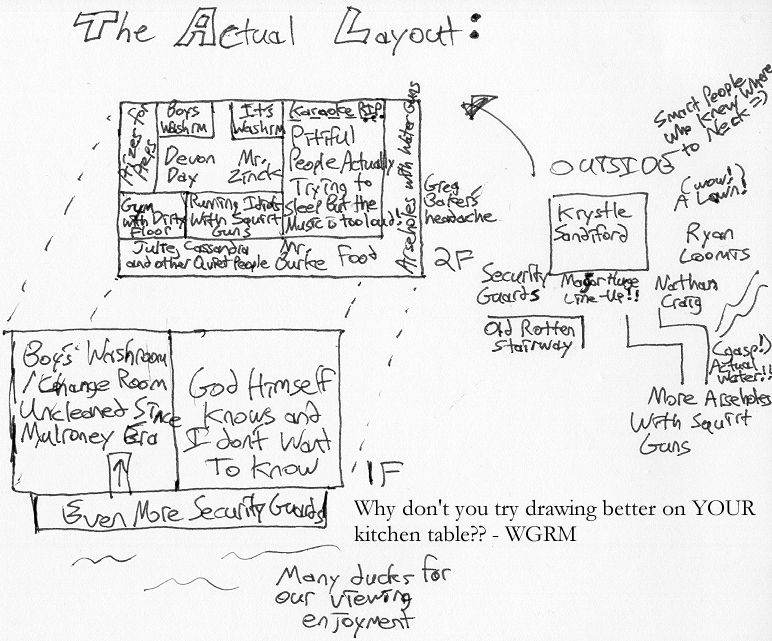 The Actual Layout:
Prizes for
Preps
Boys
Washrm
It's
Washrm
Karaoke RIP!
Pitiful
People Actually
Trying to
Sleep But the
Music is too loud!
Devon
Day
Mr.
Zinck
Gym
with Dirty
Floor
Running Idiots
With Squirt
Guns
Julie, Cassandra
and other Quiet People
Mr.
Burke
Food
Arseholes with Water Guns
Greg
Baker's
headache
2F
OUTSIDE
Smart People
Who Knew Where
to Neck =)
(wow!)
A Lawn!
Krystle
Sandiford
Ryan
Loomis
Security
Guards
Major Huge
Line-Up!!
Nathan
Craig
Old Rotten
Stairway
(gasp!)
Actual
Water!!
More Arseholes
With Squirt
Guns
Boys' Washroom
/Change Room
Uncleaned Since
Mulroney Era
God Himself
Knows and
I don't Want
To Know
1F
Even More Security Guards
Why don't you try drawing better on YOUR
kitchen table?? - WGRM
Many ducks for
our viewing
enjoyment